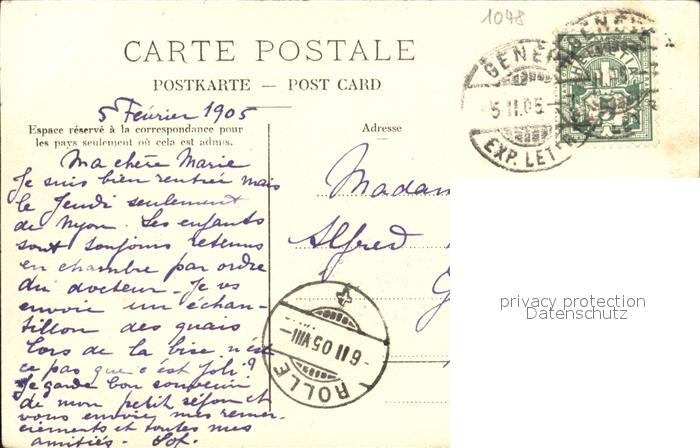 1048
CARTE POSTALE
POSTKARTE — POST CARD
5 Février 1905
Espace réservé à la correspondance pour
les pays seulement où cela est admis.
Adresse
Ma chère Marie
Je suis bien rentrée mais
le Jeudi seulement
de Nyon. Les enfants
sont toujours retenus
en chambre par ordre
du docteur. Je vs
envoie un échan-
tillon des quais
lors de la bise. n'est
ce pas que c'est joli?
Je garde bon souvenir
de mon petit séjour et
vous envoie mes remer-
ciements et toutes mes
amitiés.
Madam
Alfred
GENÈVE
5 II.05.
EXP. LET
HELVETIA
5
ROLLE
6 II 05 VIII
privacy protection
Datenschutz